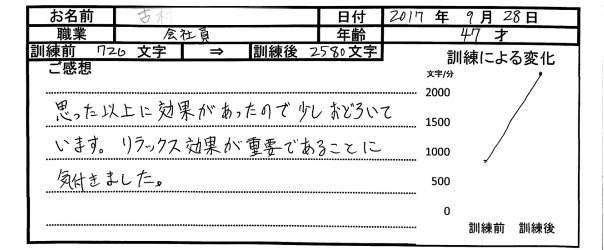 お名前 日付 2017 年 9 月 28 日
職業 会社員 年齢 47 才
訓練前 720 文字 ⇒ 訓練後 2580 文字
ご感想
思った以上に効果があったので少しおどろいて
います。リラックス効果が重要であることに
気付きました。
訓練による変化
文字/分
2000
1500
1000
500
0
訓練前 訓練後